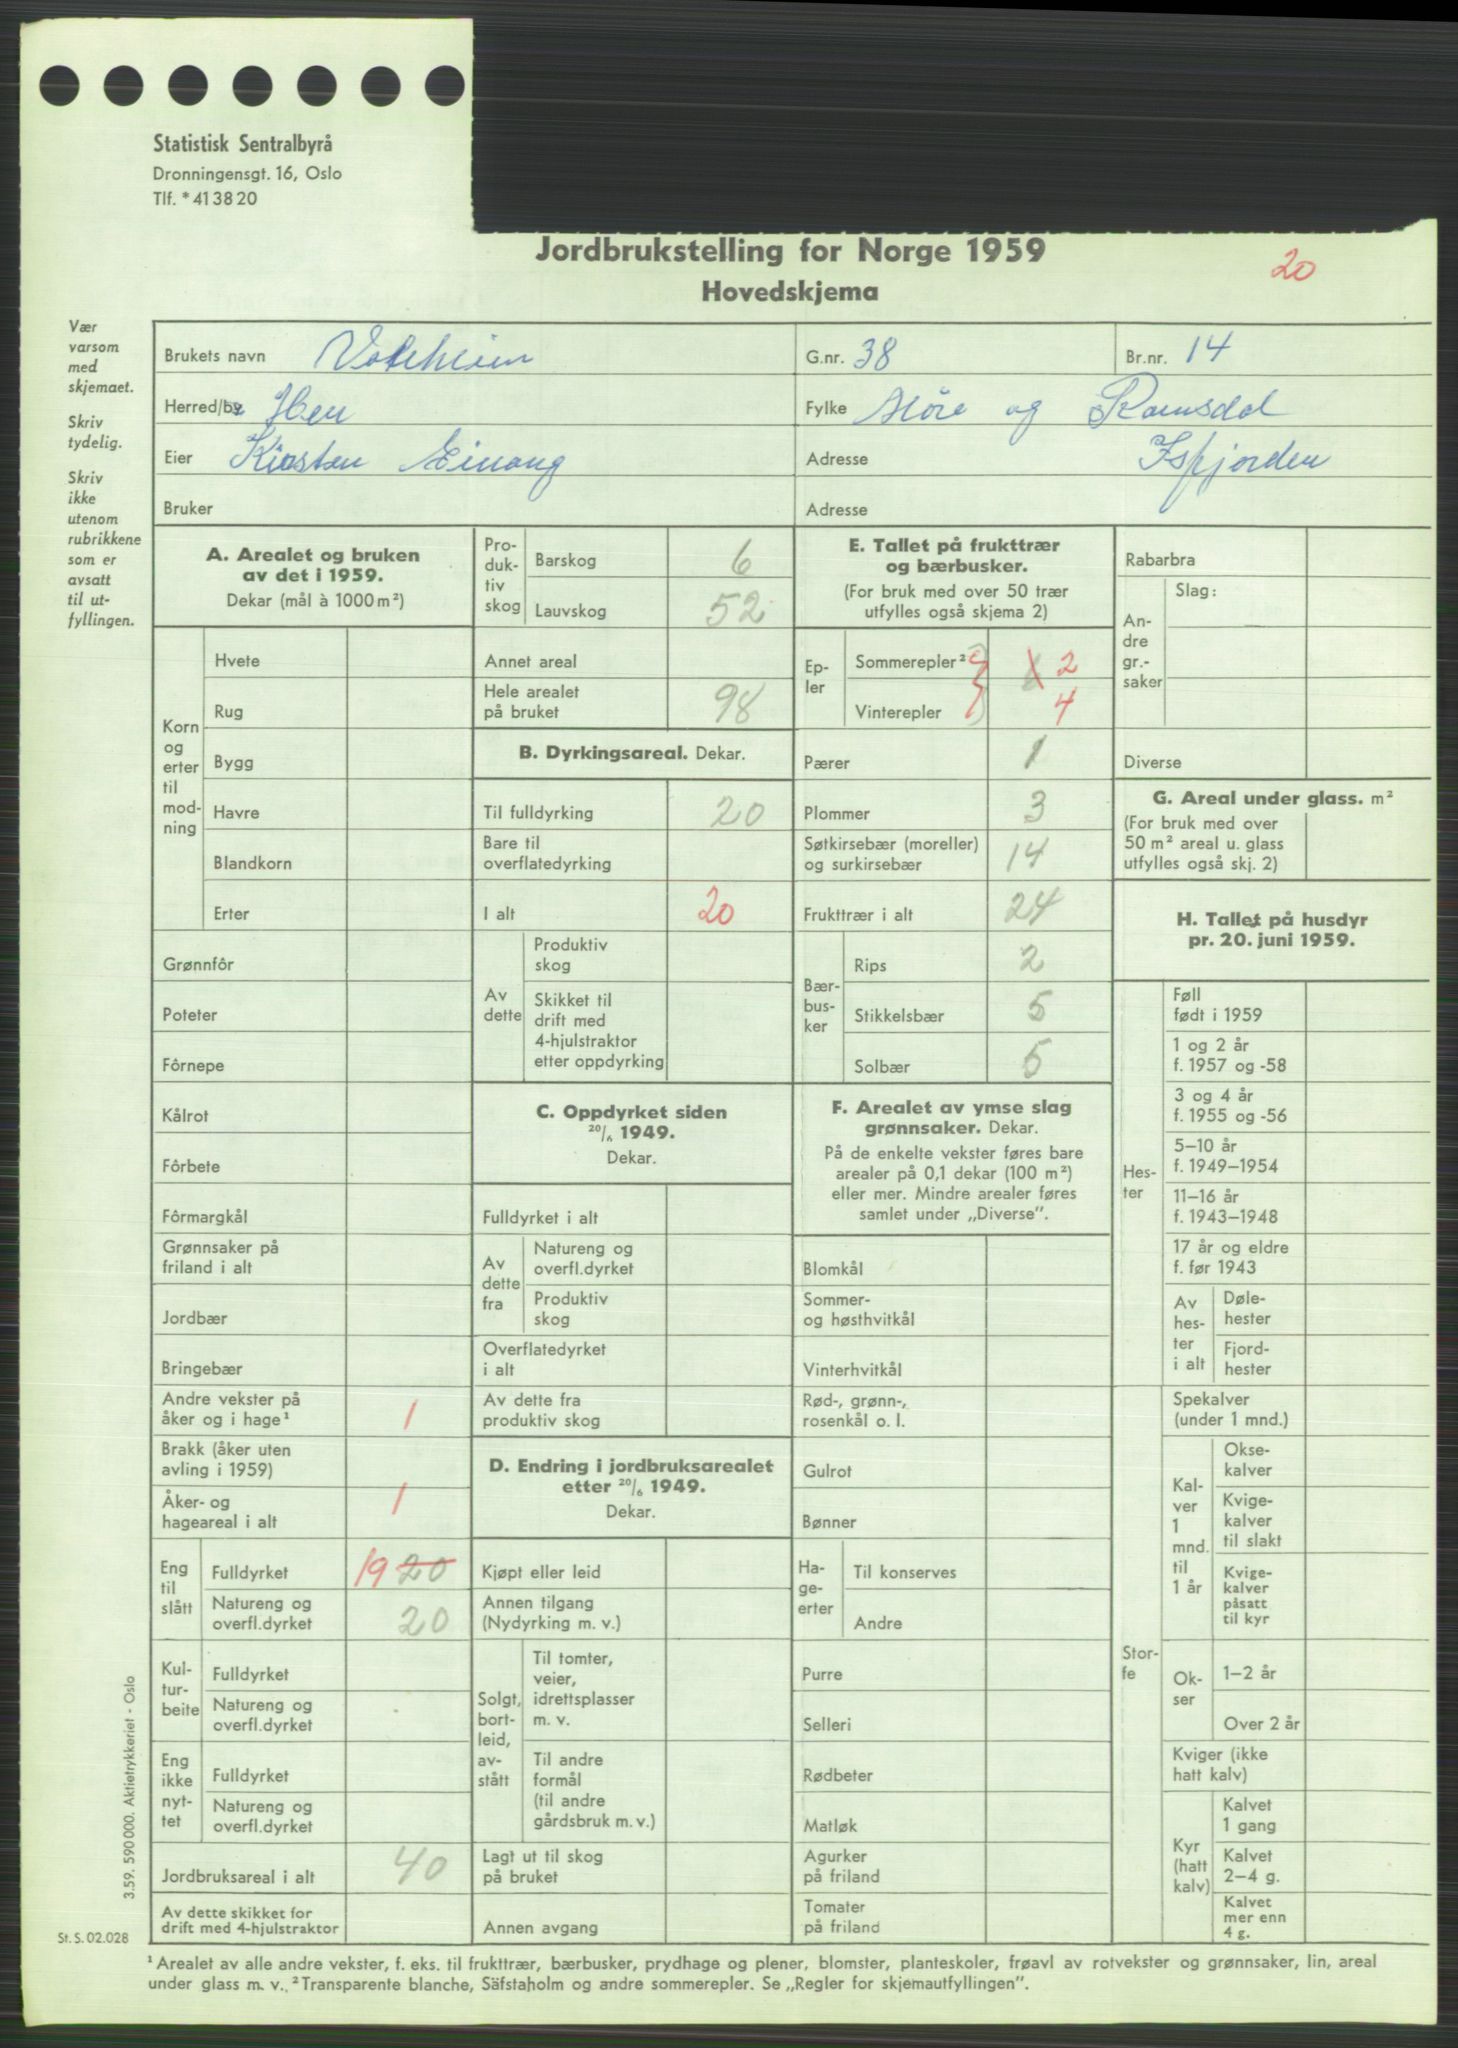 Statistisk Sentralbyrå
Dronningensgt. 16, Oslo
Tlf. * 41 38 20
Jordbrukstelling for Norge 1959
20
Hovedskjema
Vær
varsom
med
skjemaet.
Skriv
tydelig.
Skriv
ikke
utenom
rubrikkene
som er
avsatt
til ut-
fyllingen.
Brukets navn
G.nr. 38
Br.nr. 14
Herred/by Hen
Fylke Møre og Romsdal
Eier Kirsten Einang
Adresse Isfjorden
Bruker
Adresse
A. Arealet og bruken
av det i 1959.
Dekar (mål à 1000 m²)
Korn
og
erter
til
mod-
ning
Hvete
Rug
Bygg
Havre
Blandkorn
Erter
Grønnfôr
Poteter
Fôrnepe
Kålrot
Fôrbete
Fôrmargkål
Grønnsaker på
friland i alt
Jordbær
Bringebær
Andre vekster på
åker og i hage¹ 1
Brakk (åker uten
avling i 1959)
Åker- og
hageareal i alt 1
Eng
til
slått
Fulldyrket 19 20
Natureng og
overfl.dyrket 20
Kul-
tur-
beite
Fulldyrket
Natureng og
overfl.dyrket
Eng
ikke
nyt-
tet
Fulldyrket
Natureng og
overfl.dyrket
Jordbruksareal i alt 40
Av dette skikket for
drift med 4-hjulstraktor
Pro-
duk-
tiv
skog
Barskog 6
Lauvskog 52
Annet areal
Hele arealet
på bruket 98
B. Dyrkingsareal. Dekar.
Til fulldyrking 20
Bare til
overflatedyrking
I alt 20
Av
dette
Produktiv
skog
Skikket til
drift med
4-hjulstraktor
etter oppdyrking
C. Oppdyrket siden
20/6 1949.
Dekar.
Fulldyrket i alt
Av
dette
fra
Natureng og
overfl.dyrket
Produktiv
skog
Overflatedyrket
i alt
Av dette fra
produktiv skog
D. Endring i jordbruksarealet
etter 20/6 1949.
Dekar.
Kjøpt eller leid
Annen tilgang
(Nydyrking m. v.)
Solgt,
bort-
leid,
av-
stått
Til tomter,
veier,
idrettsplasser
m. v.
Til andre
formål
(til andre
gårdsbruk m. v.)
Lagt ut til skog
på bruket
Annen avgang
E. Tallet på frukttrær
og bærbusker.
(For bruk med over 50 trær
utfylles også skjema 2)
Ep-
ler
Sommerepler² 2
Vinterepler 4
Pærer 1
Plommer 3
Søtkirsebær (moreller)
og surkirsebær 14
Frukttrær i alt 24
Bær-
bus-
ker
Rips 2
Stikkelsbær 5
Solbær 5
F. Arealet av ymse slag
grønnsaker. Dekar.
På de enkelte vekster føres bare
arealer på 0,1 dekar (100 m²)
eller mer. Mindre arealer føres
samlet under „Diverse”.
Blomkål
Sommer-
og høsthvitkål
Vinterhvitkål
Rød-, grønn-,
rosenkål o. l.
Gulrot
Bønner
Ha-
ge-
erter
Til konserves
Andre
Purre
Selleri
Rødbeter
Matløk
Agurker
på friland
Tomater
på friland
Rabarbra
An-
dre
gr.-
saker
Slag:
Diverse
G. Areal under glass. m²
(For bruk med over
50 m² areal u. glass
utfylles også skj. 2)
H. Tallet på husdyr
pr. 20. juni 1959.
Hes-
ter
Føll
født i 1959
1 og 2 år
f. 1957 og -58
3 og 4 år
f. 1955 og -56
5–10 år
f. 1949–1954
11–16 år
f. 1943–1948
17 år og eldre
f. før 1943
Av
hes-
ter
i alt
Døle-
hester
Fjord-
hester
Stor-
fe
Spekalver
(under 1 mnd.)
Kal-
ver
1
mnd.
til
1 år
Okse-
kalver
Kvige-
kalver
til slakt
Kvige-
kalver
påsatt
til kyr
Ok-
ser
1–2 år
Over 2 år
Kviger (ikke
hatt kalv)
Kyr
(hatt
kalv)
Kalvet
1 gang
Kalvet
2–4 g.
Kalvet
mer enn
4 g.
3.59. 590 000. Aktietrykkeriet - Oslo
St. S. 02.028
¹ Arealet av alle andre vekster, f. eks. til frukttrær, bærbusker, prydhage og plener, blomster, planteskoler, frøavl av rotvekster og grønnsaker, lin, areal
under glass m. v. ² Transparente blanche, Säfstaholm og andre sommerepler. Se „Regler for skjemautfyllingen”.